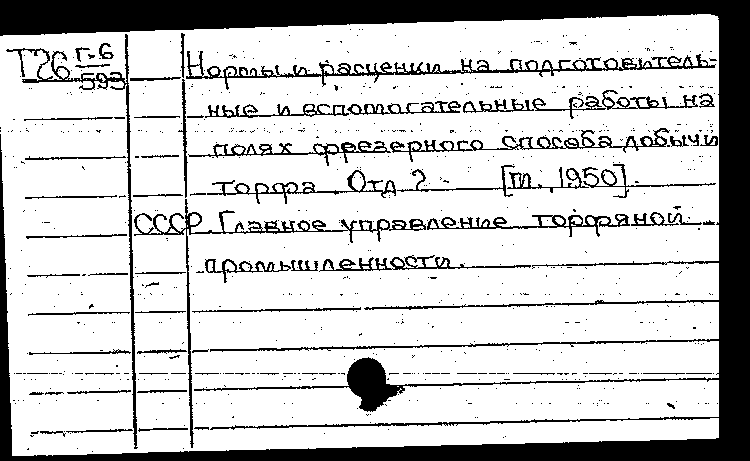 Т26 г.6/593 Нормы и расценки на подготовитель-
ные и вспомогательные работы на
полях фрезерного способа добычи
торфа. Отд 2. [М., 1950].
СССР. Главное управление торфяной
промышленности.